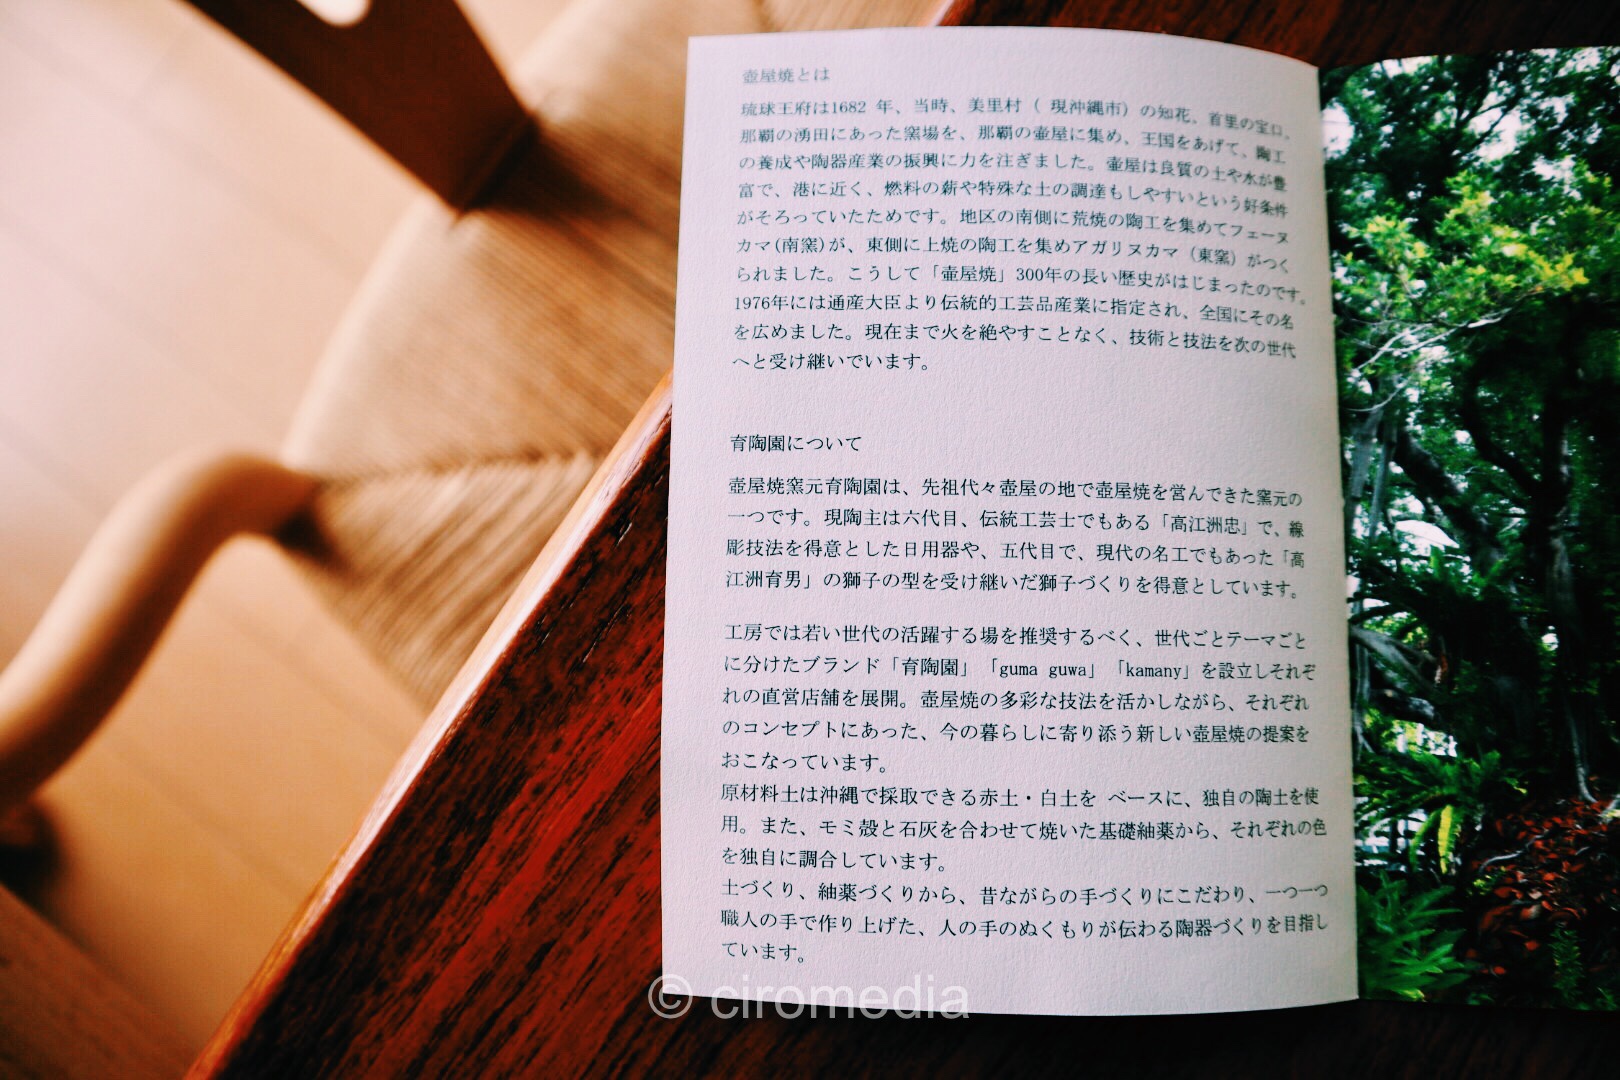 壺屋焼とは
琉球王府は1682 年、当時、美里村（ 現沖縄市）の知花、首里の宝口、
那覇の湧田にあった窯場を、那覇の壷屋に集め、王国をあげて、陶工
の養成や陶器産業の振興に力を注ぎました。壷屋は良質の土や水が豊
富で、港に近く、燃料の薪や特殊な土の調達もしやすいという好条件
がそろっていたためです。地区の南側に荒焼の陶工を集めてフェーヌ
カマ(南窯)が、東側に上焼の陶工を集めアガリヌカマ（東窯）がつく
られました。こうして「壷屋焼」300年の長い歴史がはじまったのです。
1976年には通産大臣より伝統的工芸品産業に指定され、全国にその名
を広めました。現在まで火を絶やすことなく、技術と技法を次の世代
へと受け継いでいます。
育陶園について
壺屋焼窯元育陶園は、先祖代々壺屋の地で壺屋焼を営んできた窯元の
一つです。現陶主は六代目、伝統工芸士でもある「高江洲忠」で、線
彫技法を得意とした日用器や、五代目で、現代の名工でもあった「高
江洲育男」の獅子の型を受け継いだ獅子づくりを得意としています。
工房では若い世代の活躍する場を推奨するべく、世代ごとテーマごと
に分けたブランド「育陶園」「guma guwa」「kamany」を設立しそれぞ
れの直営店舗を展開。壺屋焼の多彩な技法を活かしながら、それぞれ
のコンセプトにあった、今の暮らしに寄り添う新しい壺屋焼の提案を
おこなっています。
原材料土は沖縄で採取できる赤土・白土を ベースに、独自の陶土を使
用。また、モミ殻と石灰を合わせて焼いた基礎紬薬から、それぞれの色
を独自に調合しています。
土づくり、紬薬づくりから、昔ながらの手づくりにこだわり、一つ一つ
職人の手で作り上げた、人の手のぬくもりが伝わる陶器づくりを目指し
ています。
© ciromedia